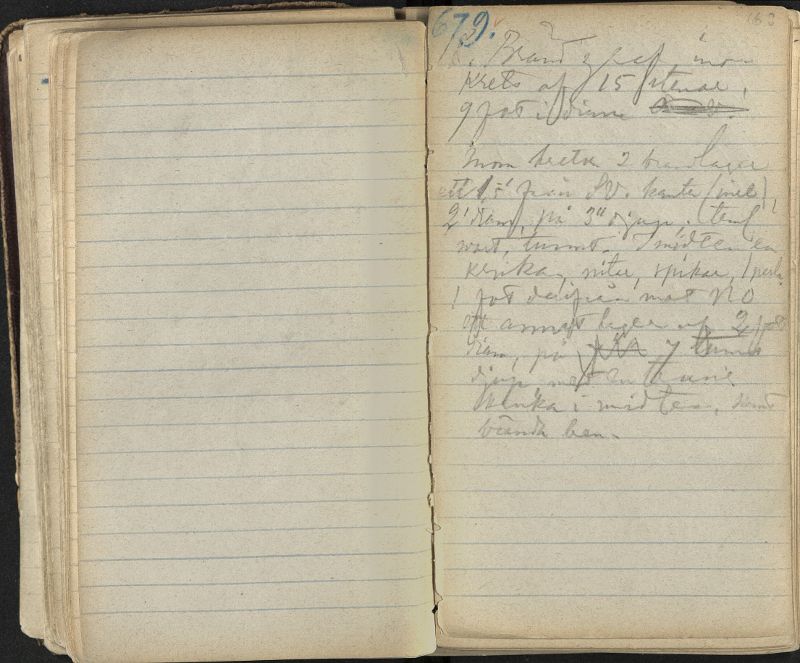 679.
163
Brandgraf, inom
krets af 15 stenar,
9 fot i diam
Inom kretsen 2 brandlager
ett 1,5' från SV. kanten (inre),
2' diam, på 3" djup,
svart, tunnt. I midten en
kruka, nitar, spikar, 1 perla
1 fot derifrån mot NO
ett annat lager af 2 fot
diam, på 7 tums
djup, med en
kruka i midten, samt
brända ben.